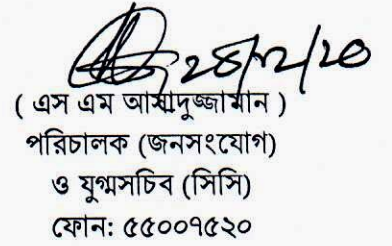 ২৪/১২/২০
( এস এম আসাদুজ্জামান )
পরিচালক (জনসংযোগ)
ও যুগ্মসচিব (সিসি)
ফোন: ৫৫০০৭৫২০